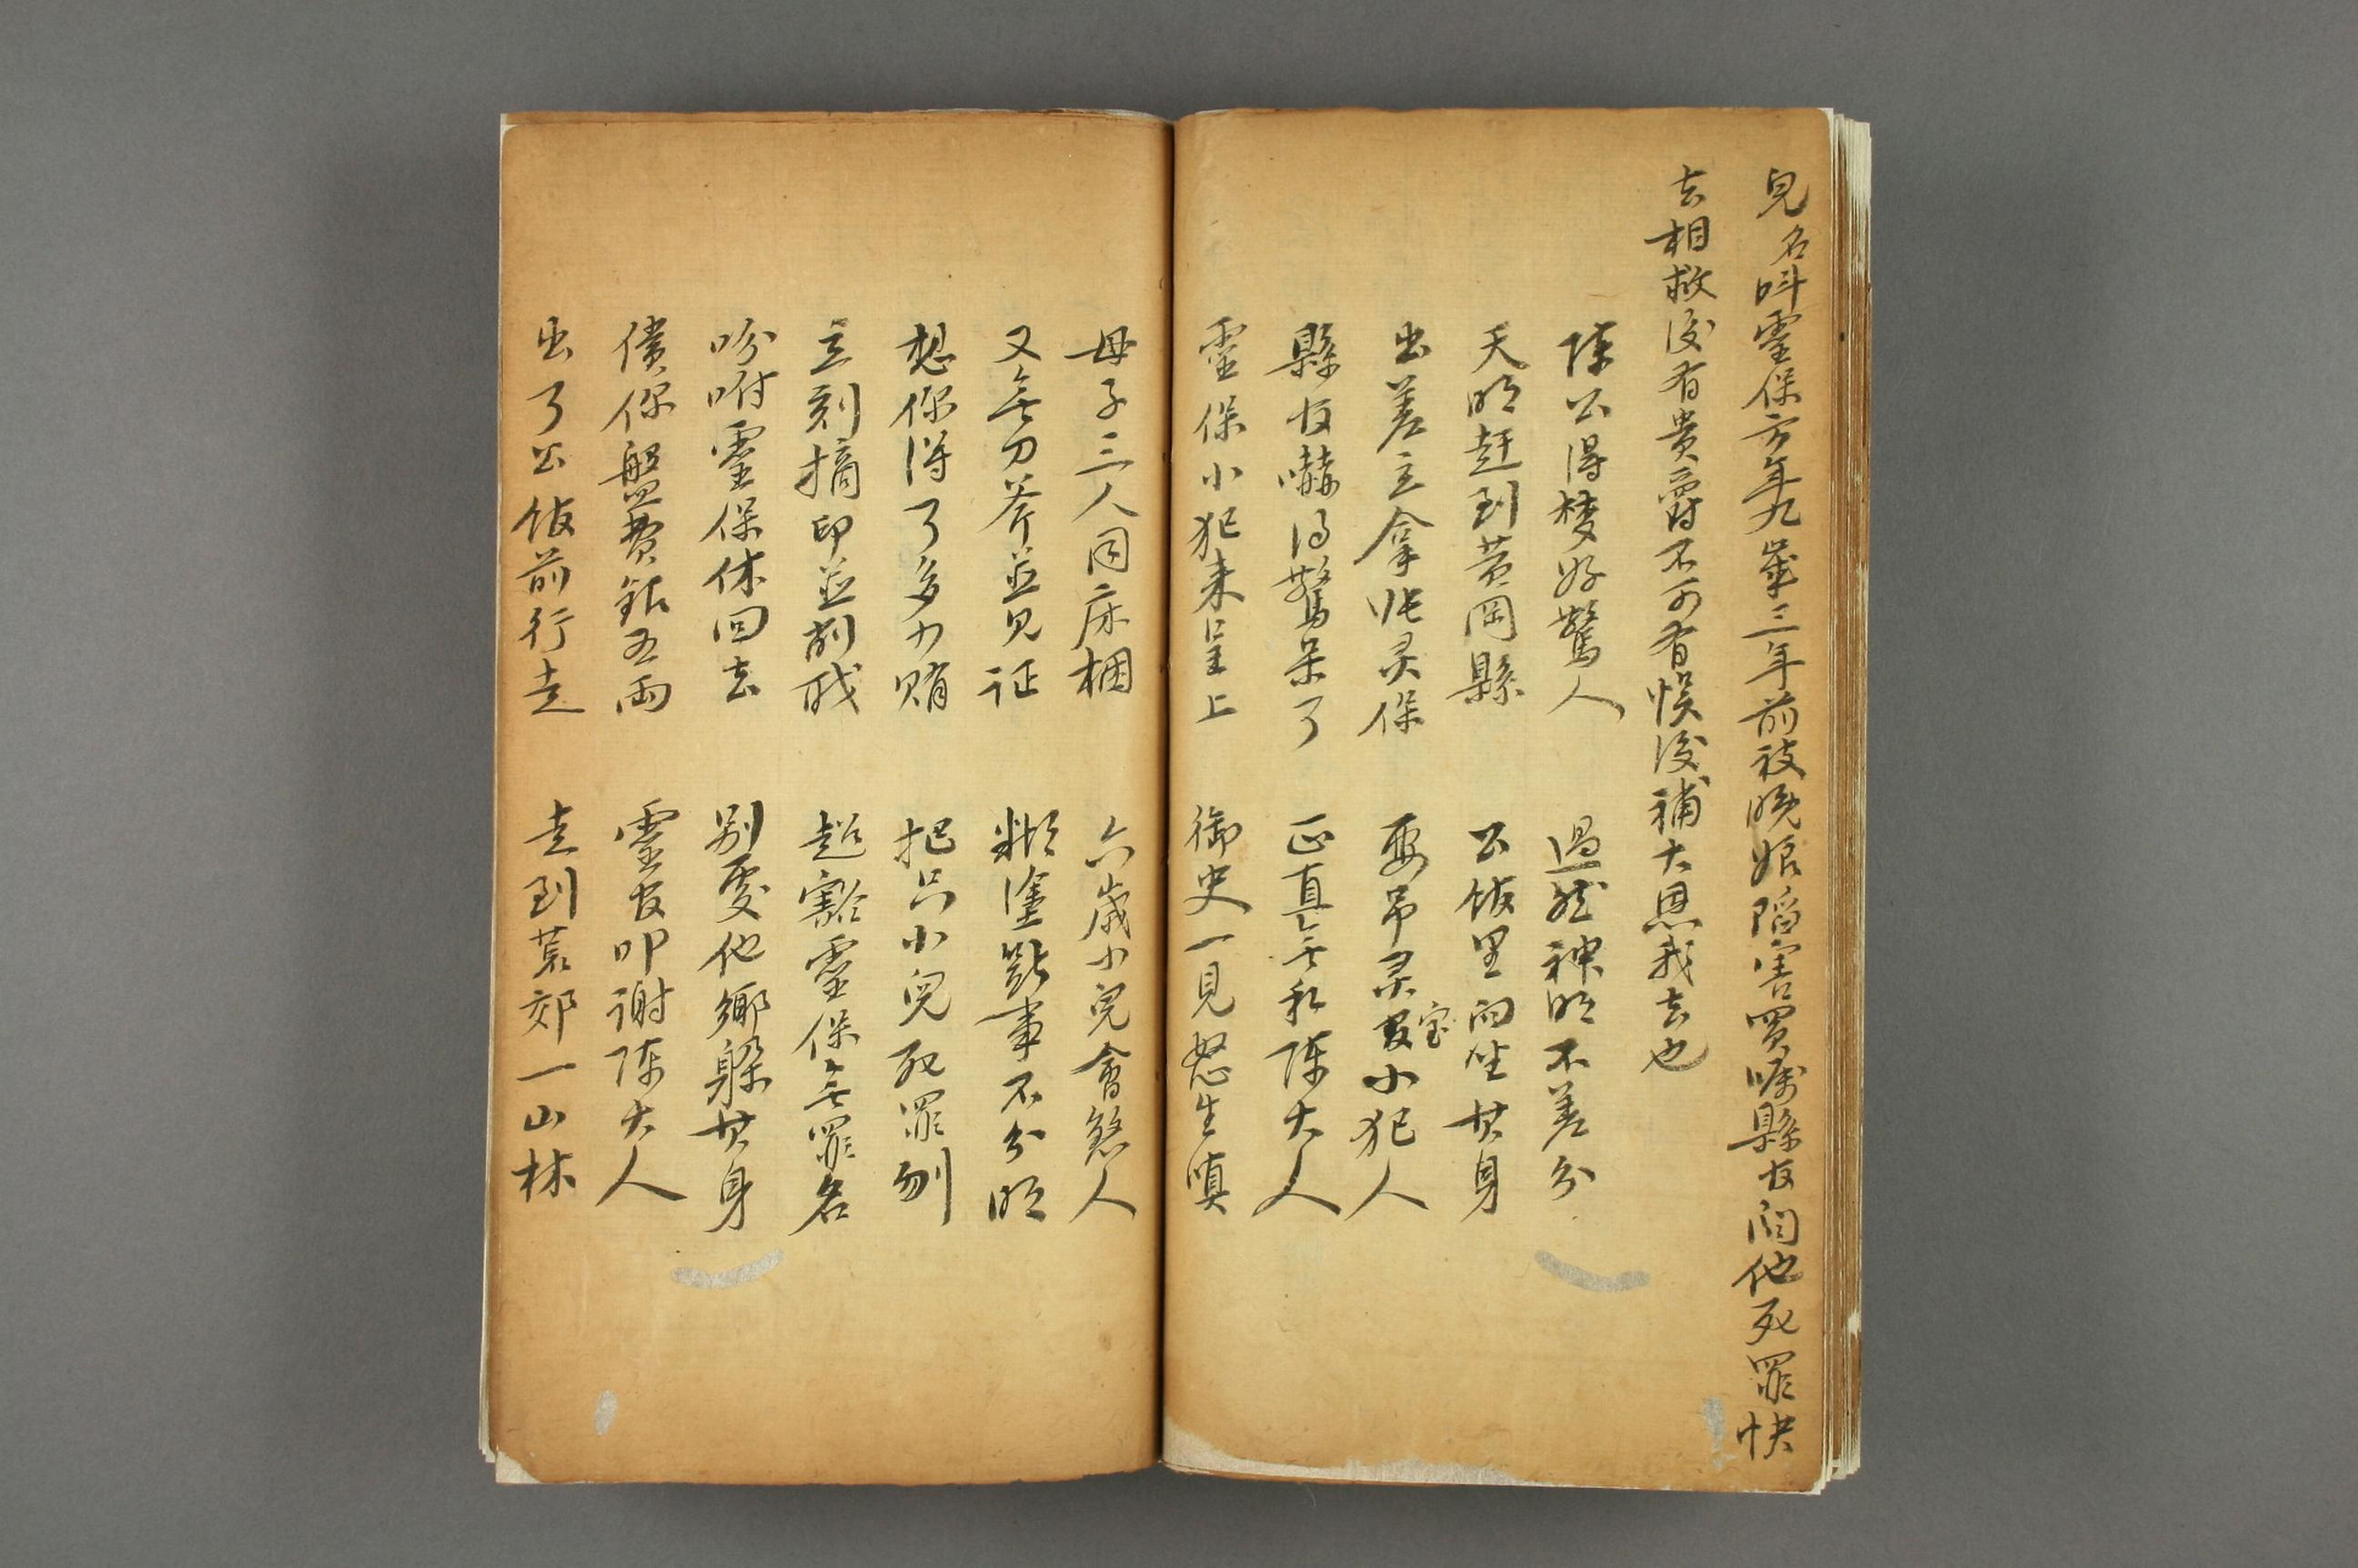 兒名呌靈保方年九歲三年前被晚娘陷害買嘱縣官问他死罪快
去相救後有貴爵不可有悮後補大恩我去也
陳公得梦好驚人 過然神明不差分
天明赶到黄岡縣 公館里向坐其身
出差立拿张灵保 要吊灵宝小犯人
縣官嚇得驚呆了 正直无私陳大人
靈保小犯来呈上 御史一見怒生嗔
母子三人同床梱 六歲小兒會煞人
又无刀斧並見证 糊塗斷事不分明
想你得了多少賄 把只小兒死罪刎
立刻摘印並削职 超豁靈保无罪名
吩咐靈保休回去 别處他鄉躲其身
償你盤費銀五両 靈官叩谢陳大人
出了公館前行走 走到荒郊一山林